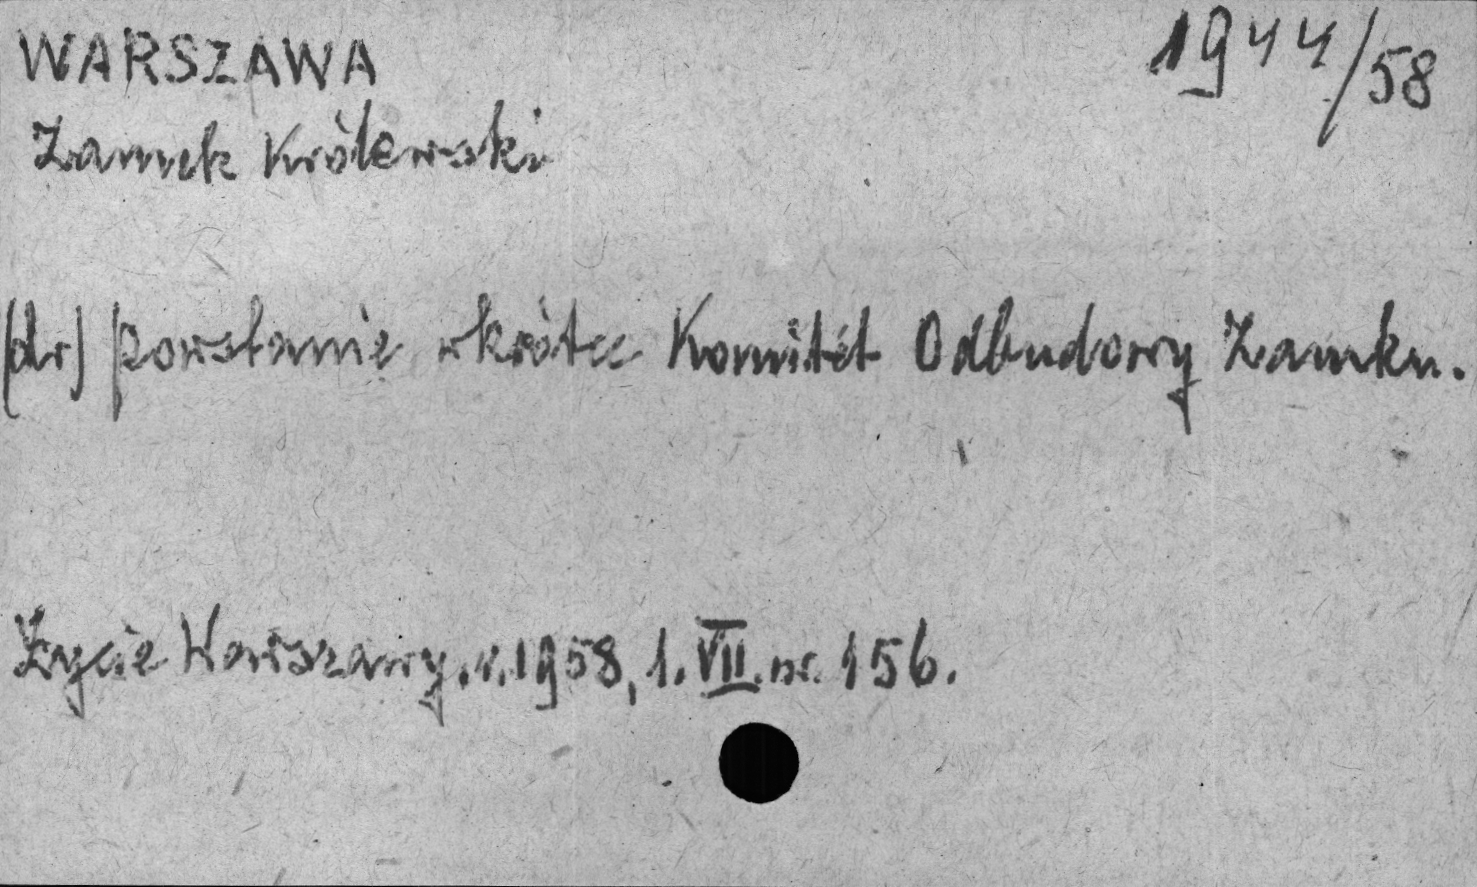 WARSZAWA 1944/58
Zamek Królewski
(dr) powstanie wkrótce Komitet Odbudowy Zamku.
Życie Warszawy. r. 1958, 1. VII. nr. 156.